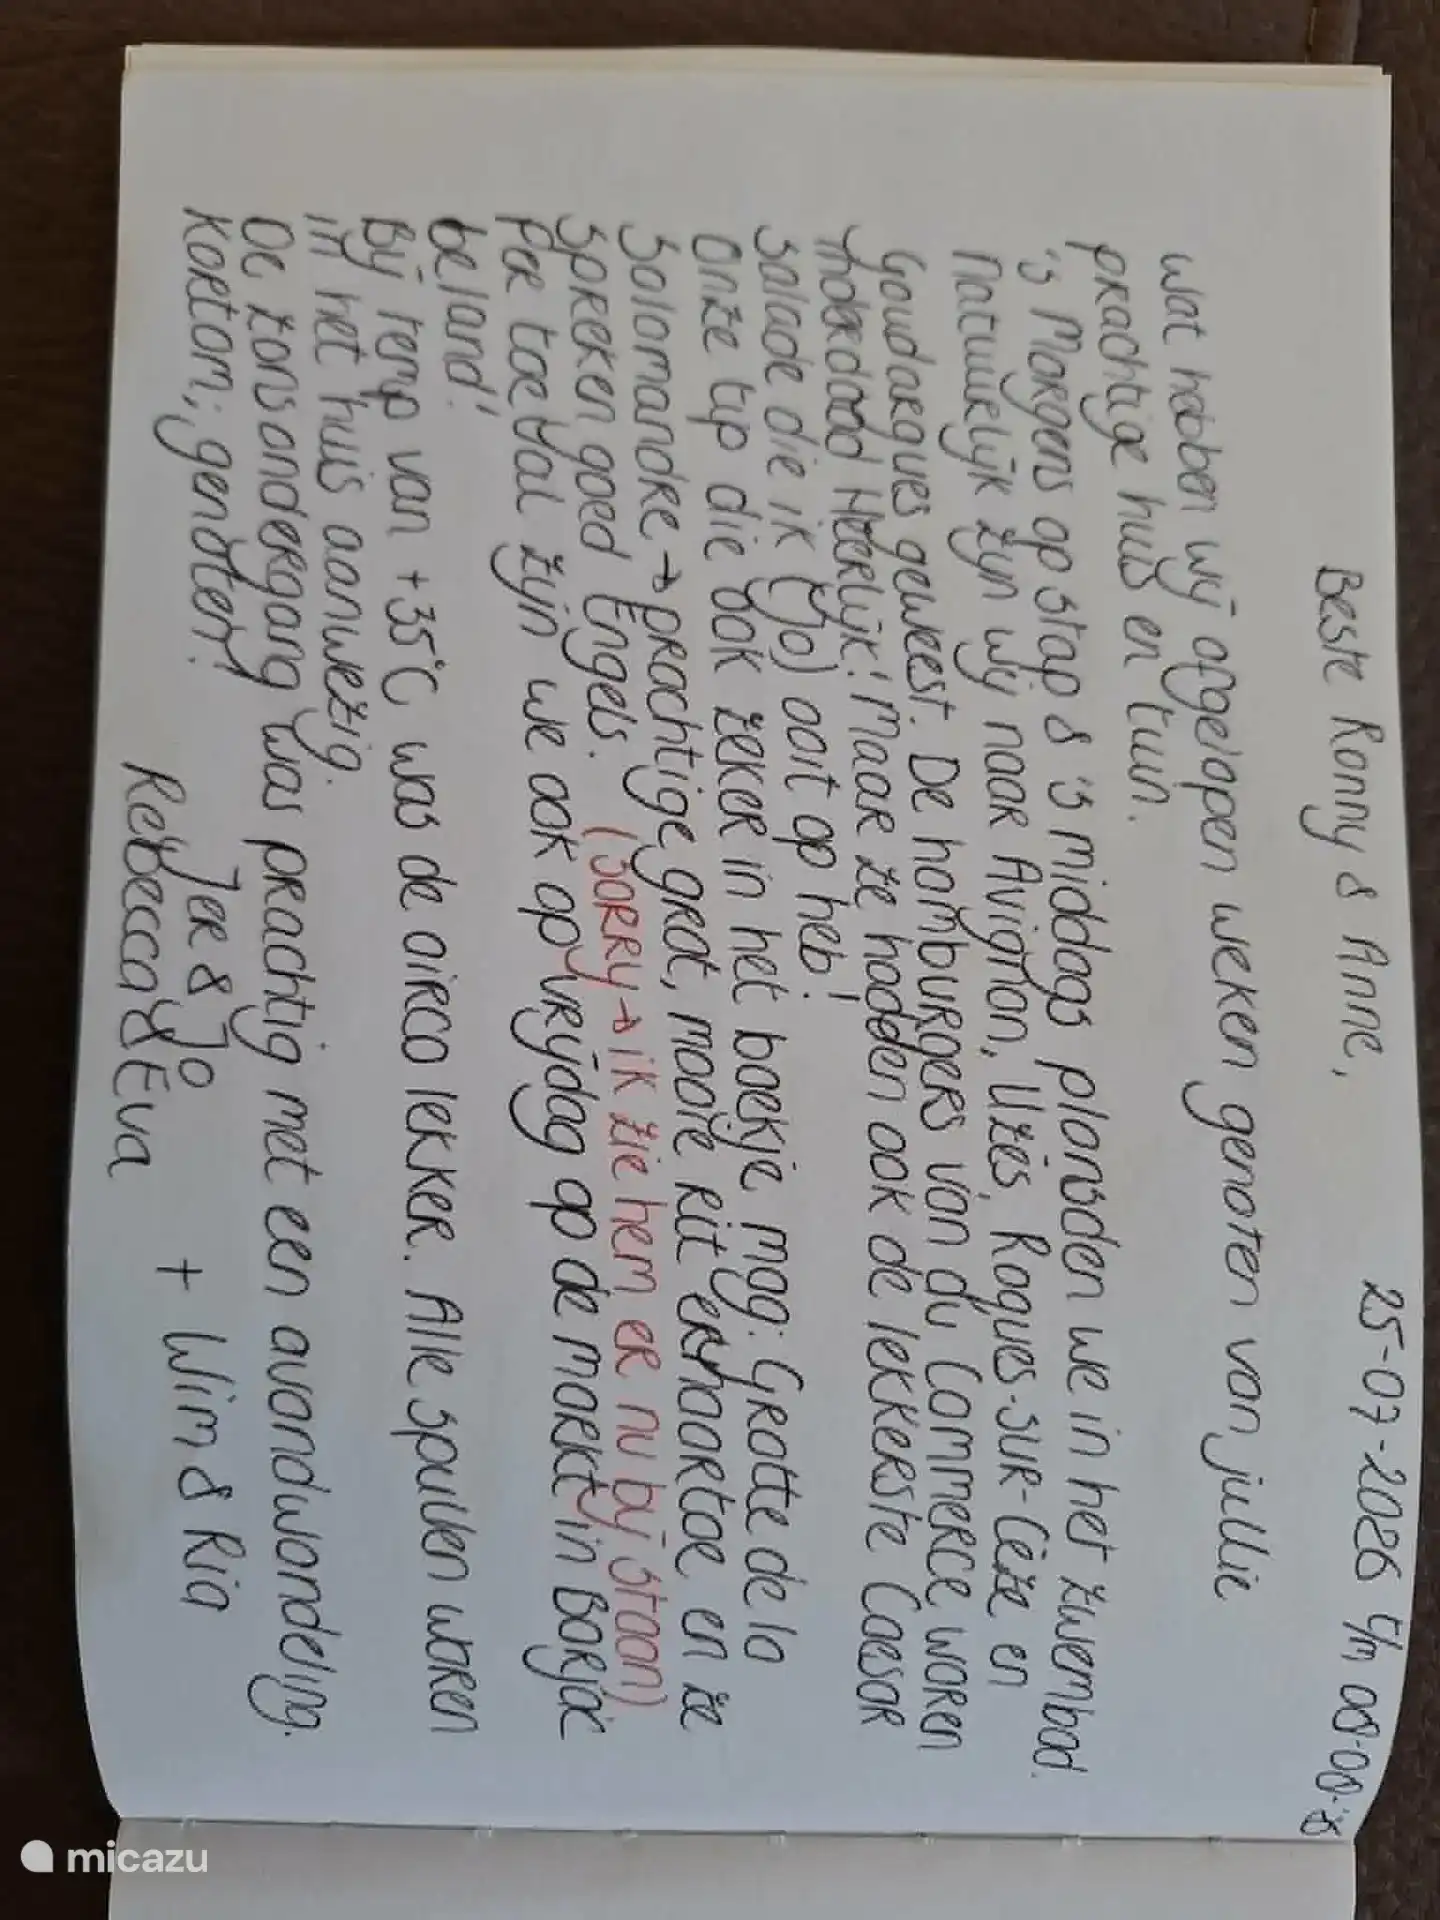 25-07-2026 t/m 08-08-'26
Beste Ronny & Anne,
Wat hebben wij afgelopen weken genoten van jullie
prachtige huis en tuin.
's Morgens op stap & 's middags plonsden we in het zwembad.
Natuurlijk zijn wij naar Avignon, Uzès, Roques-sur-Cèze en
Goudargues geweest. De hamburgers van du Commerce waren
inderdaad Heerlijk! Maar ze hadden ook de lekkerste Caesar
salade die ik (Jo) ooit op heb!
Onze tip die ook zeker in het boekje mag: Grotte de la
Salamandre → prachtige grot, mooie rit ernaartoe en ze
spreken goed Engels. (sorry → ik zie hem er nu bij staan)
Per toeval zijn we ook op vrijdag op de markt in Barjac
beland!
Bij temp van +35°C, was de airco lekker. Alle spullen waren
in het huis aanwezig.
De zonsondergang was prachtig met een avondwandeling.
Kortom; genoten!
Jer & Jo
Rebecca & Eva
+ Wim & Ria
micazu